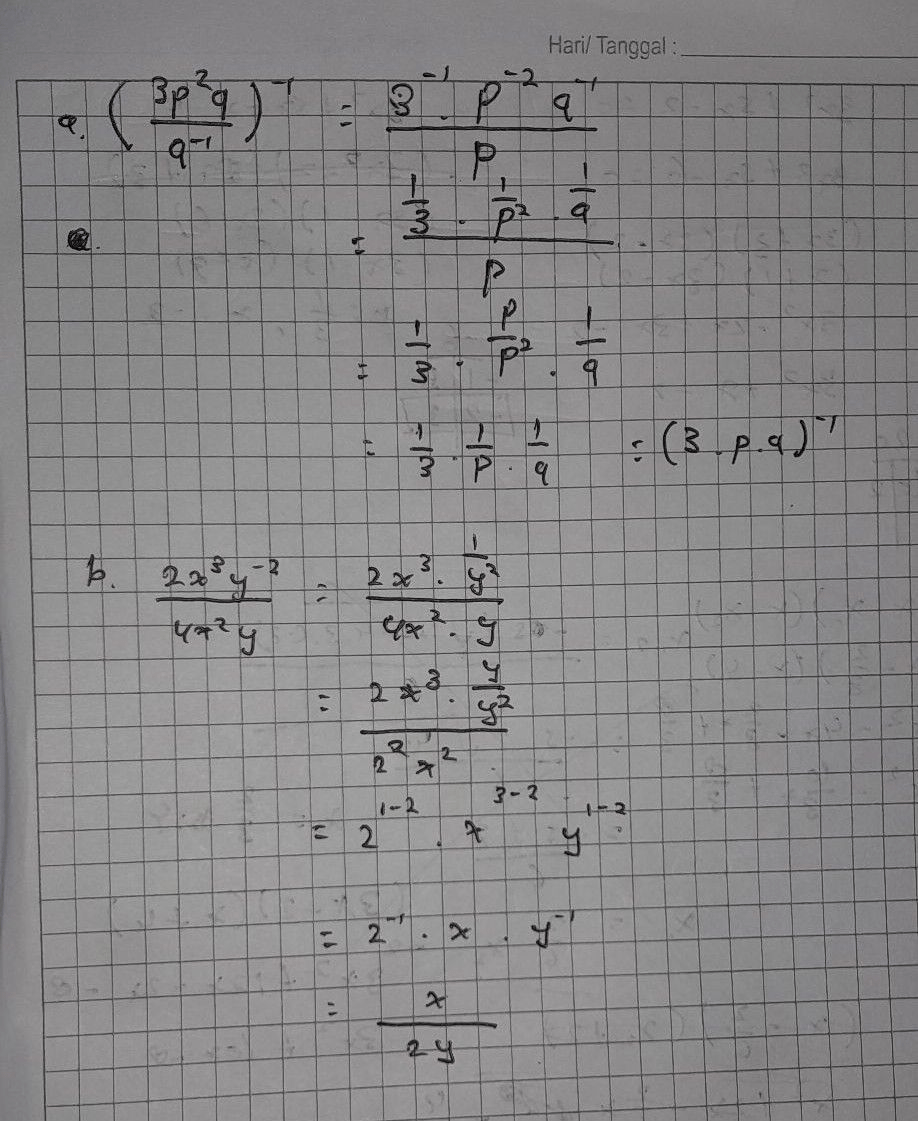 Hari/ Tanggal :
a. (3p²q / q⁻¹)⁻¹ = 3⁻¹ . p⁻² q⁻¹ / p
= 1/3 . 1/p² . 1/q / p
= 1/3 . p/p² . 1/q
= 1/3 . 1/p . 1/q = (3 . p . q)⁻¹
b. 2x³y⁻² / 4x²y = 2x³ . 1/y² / 4x² . y
= 2x³ . y/y² / 2² x²
= 2¹⁻² . x³⁻² y¹⁻²
= 2⁻¹ . x . y⁻¹
= x / 2y